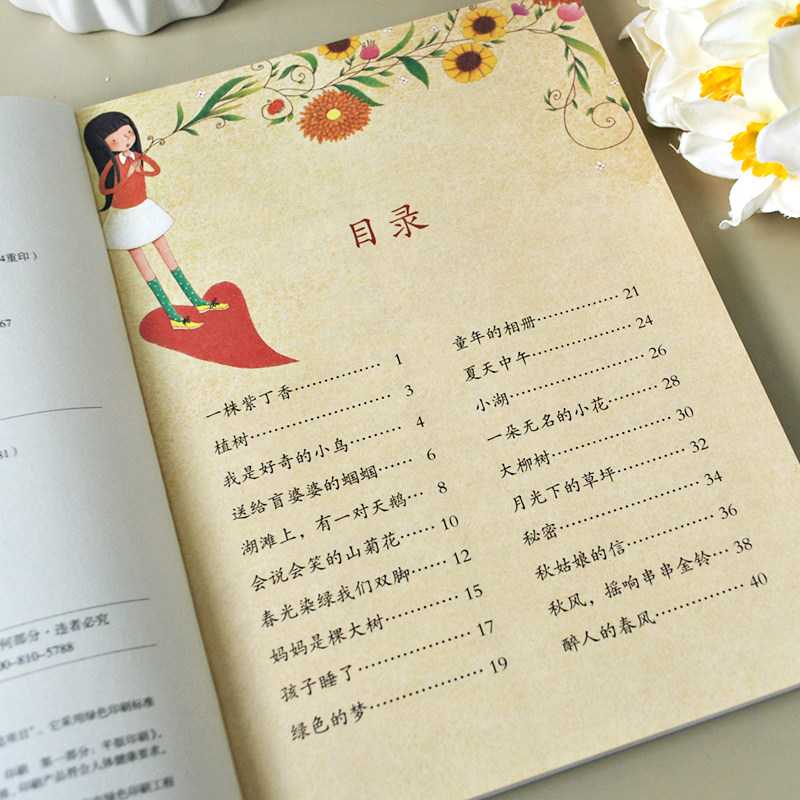 4重印）
67
81）
何部分·违者必究
00-810-5788
项目”，它采用绿色印刷标准
印刷 第一部分：平版印刷》，
印刷产品符合人体健康要求。
绿色印刷工程
目录
一株紫丁香…………… 1
植树…………………… 3
我是好奇的小鸟……… 4
送给盲婆婆的蝈蝈…… 6
湖滩上，有一对天鹅… 8
会说会笑的山菊花…… 10
春光染绿我们双脚…… 12
妈妈是棵大树………… 15
孩子睡了……………… 17
绿色的梦……………… 19
童年的相册…………… 21
夏天中午……………… 24
小湖…………………… 26
一朵无名的小花……… 28
大柳树………………… 30
月光下的草坪………… 32
秘密…………………… 34
秋姑娘的信…………… 36
秋风，摇响串串金铃… 38
醉人的春风…………… 40